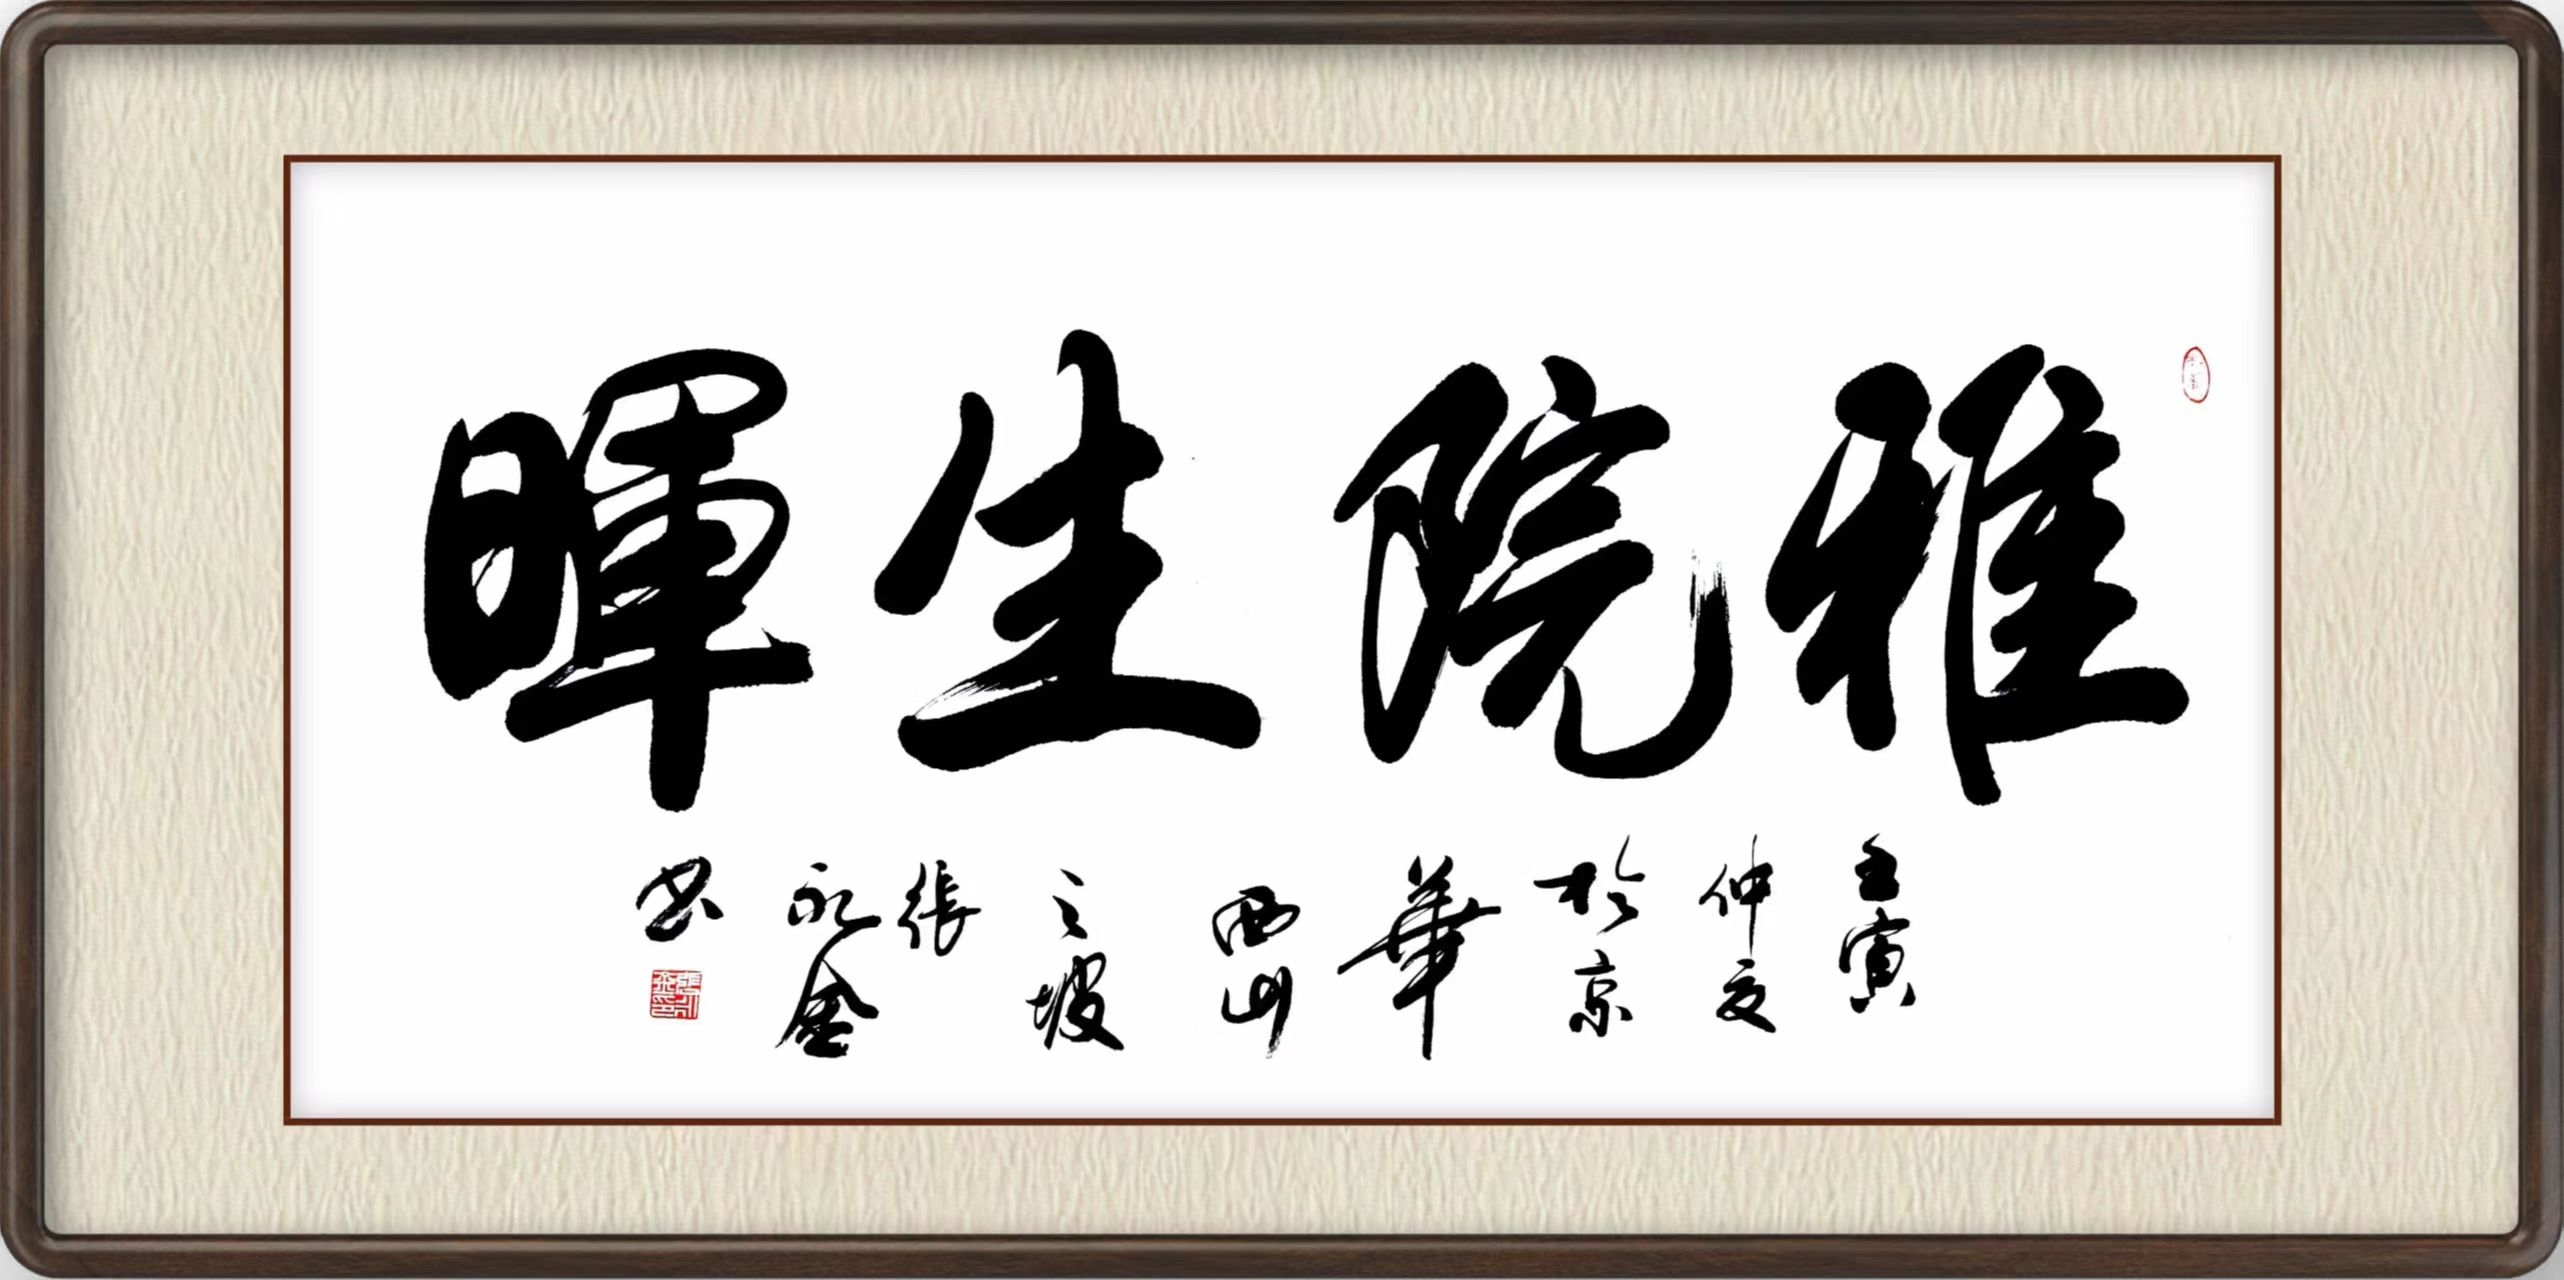 雅院生暉
壬寅
仲夏
於京
華
西山
之坡
張
永金
书